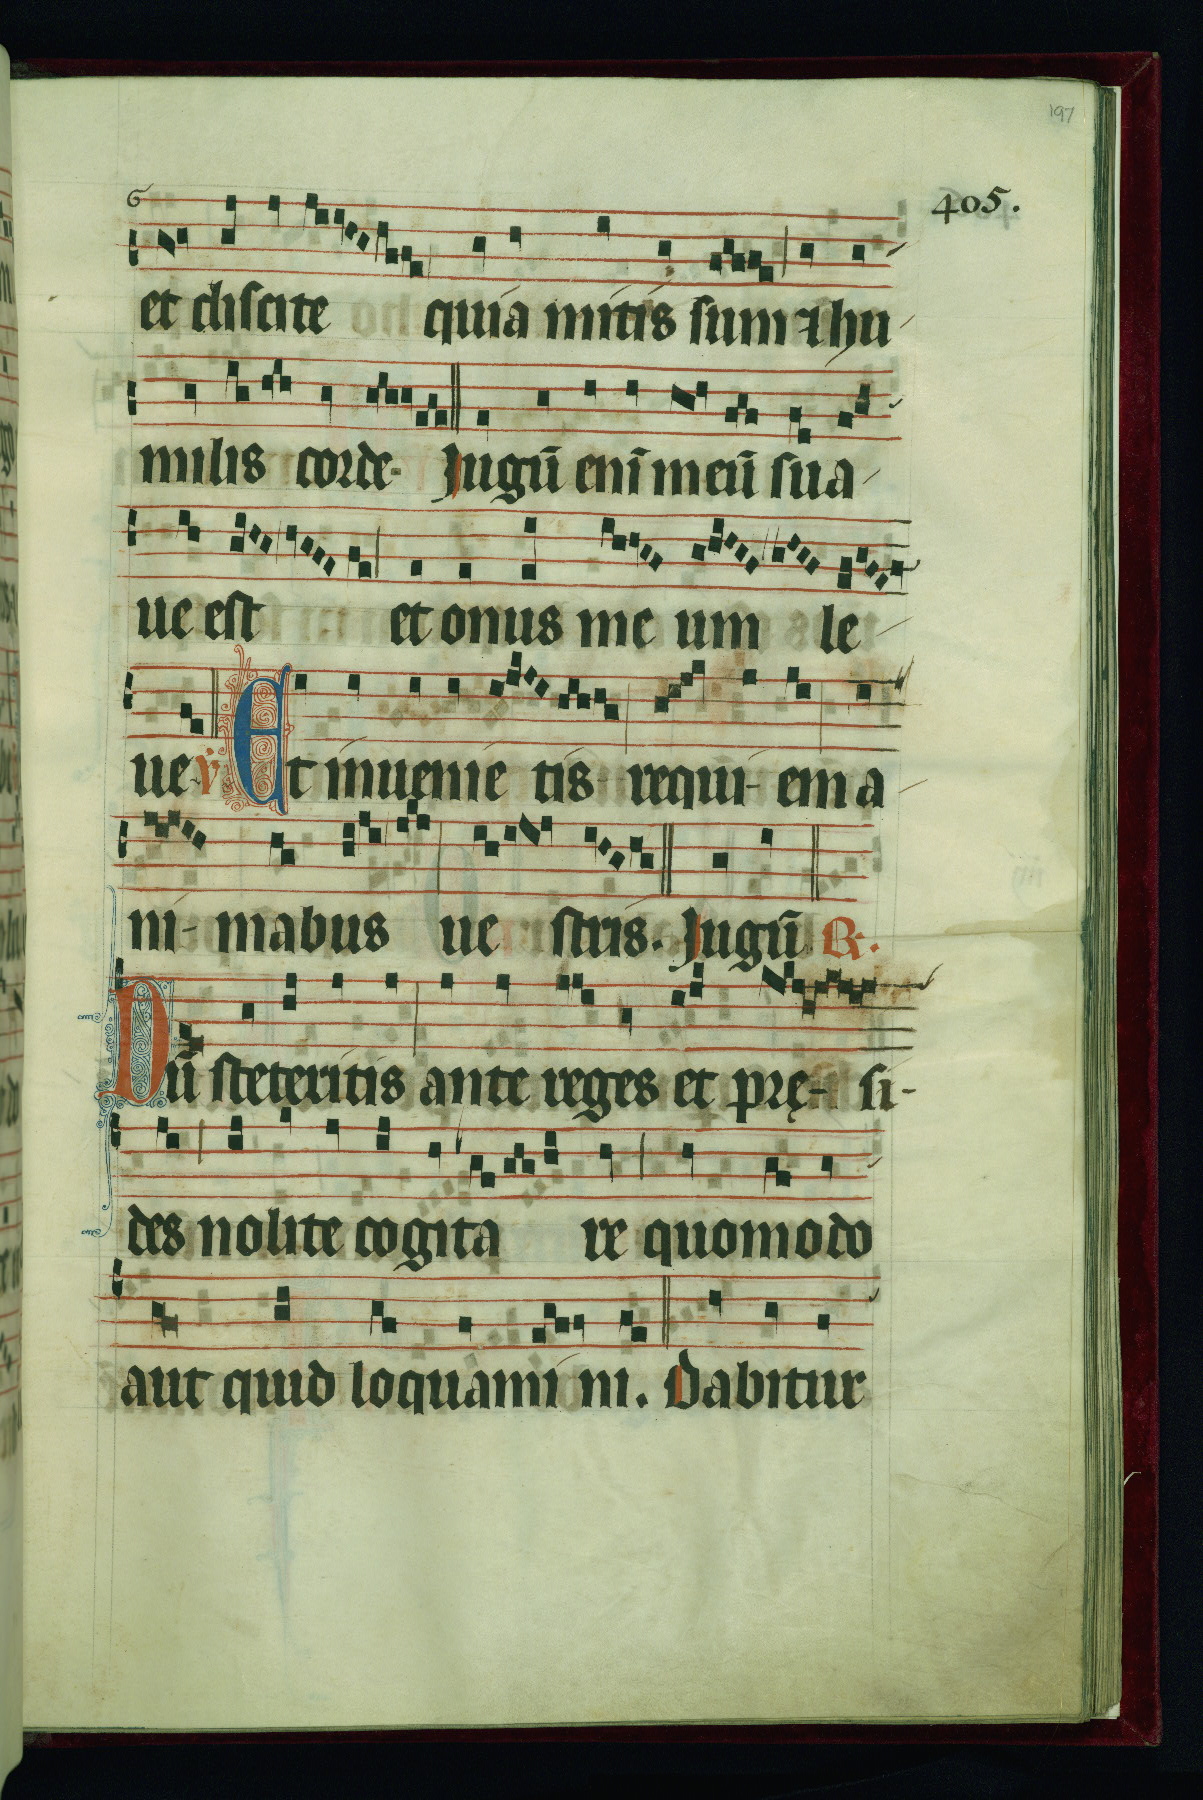 197
405.
et discite quia mitis sum ⁊ hu
milis corde. Jugū enī meū sua
ue est et onus me um le
ue. v̇ Et inuenie tis requi- em a
ni- mabus ue stris. Jugū R.
Dū steteritis ante reges et prę- si-
des nolite cogita re quomodo
aut quid loquami ni. Dabitur